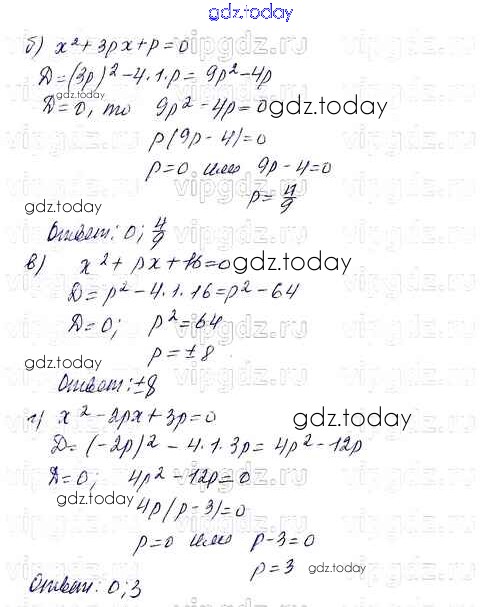 gdz.today
б) x² + 3px + p = 0
D = (3p)² - 4·1·p = 9p² - 4p
D = 0, то 9p² - 4p = 0 gdz.today
p(9p - 4) = 0
p = 0 или 9p - 4 = 0
p = 4/9
gdz.today
Ответ: 0; 4/9
в) x² + px + 16 = 0 gdz.today
D = p² - 4·1·16 = p² - 64
D = 0; p² = 64
gdz.today p = ±8.
Ответ: ±8
г) x² - 2px + 3p = 0 gdz.today
D = (-2p)² - 4·1·3p = 4p² - 12p
D = 0; 4p² - 12p = 0
gdz.today 4p(p - 3) = 0
p = 0 или p - 3 = 0
p = 3 gdz.today
Ответ: 0; 3